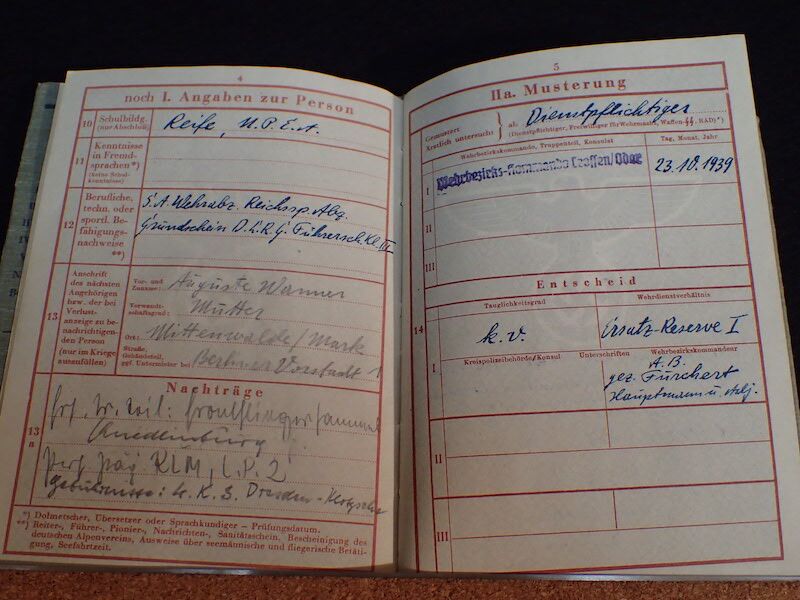 4
noch I. Angaben zur Person
10 Schulbildg. (nur Abschluß)
Reife, N.P.E.A.
11 Kenntnisse in Fremdsprachen*) (keine Schulkenntnisse)
12 Berufliche, techn. oder sportl. Befähigungsnachweise **)
S.A. Wehrabz. Reichssp. Abz.
Grundschein D.L.R.G. Führersch. Kl. III
13 Anschrift des nächsten Angehörigen bzw. der bei Verlustanzeige zu benachrichtigenden Person (nur im Kriege auszufüllen)
Vor- und Zuname:
Auguste Wanner
Verwandtschaftsgrad:
Mutter
Ort:
Mittenwalde/Mark
Straße, Gehöndeteil, ggf. Untermieter bei
Berliner Vorstadt 1
Nachträge
13a
Quedlinburg
KLM, L.P. 2
L.K.S. Dresden-
*) Dolmetscher, Übersetzer oder Sprachkundiger – Prüfungsdatum.
**) Reiter-, Führer-, Pionier-, Nachrichten-, Sanitätsschein, Bescheinigung des
deutschen Alpenvereins, Ausweise über seemännische und fliegerische Betätigung, Seefahrtzeit.
5
IIa. Musterung
Gemustert
Ärztlich untersucht
als
Dienstpflichtiger
(Dienstpflichtiger, Freiwilliger für Wehrmacht, Waffen-SS, RAD)*)
Wehrbezirkskommando, Truppenteil, Konsulat
Tag, Monat, Jahr
I Wehrbezirks-Kommando Crossen/Oder
23.10.1939
II
III
Entscheid
Tauglichkeitsgrad
Wehrdienstverhältnis
14
k.v.
Ersatz-Reserve I
I
Kreispolizeibehörde/Konsul
Unterschriften
Wehrbezirkskommandeur
A.B.
gez. Furchert
Hauptmann u. Adj.
II
III